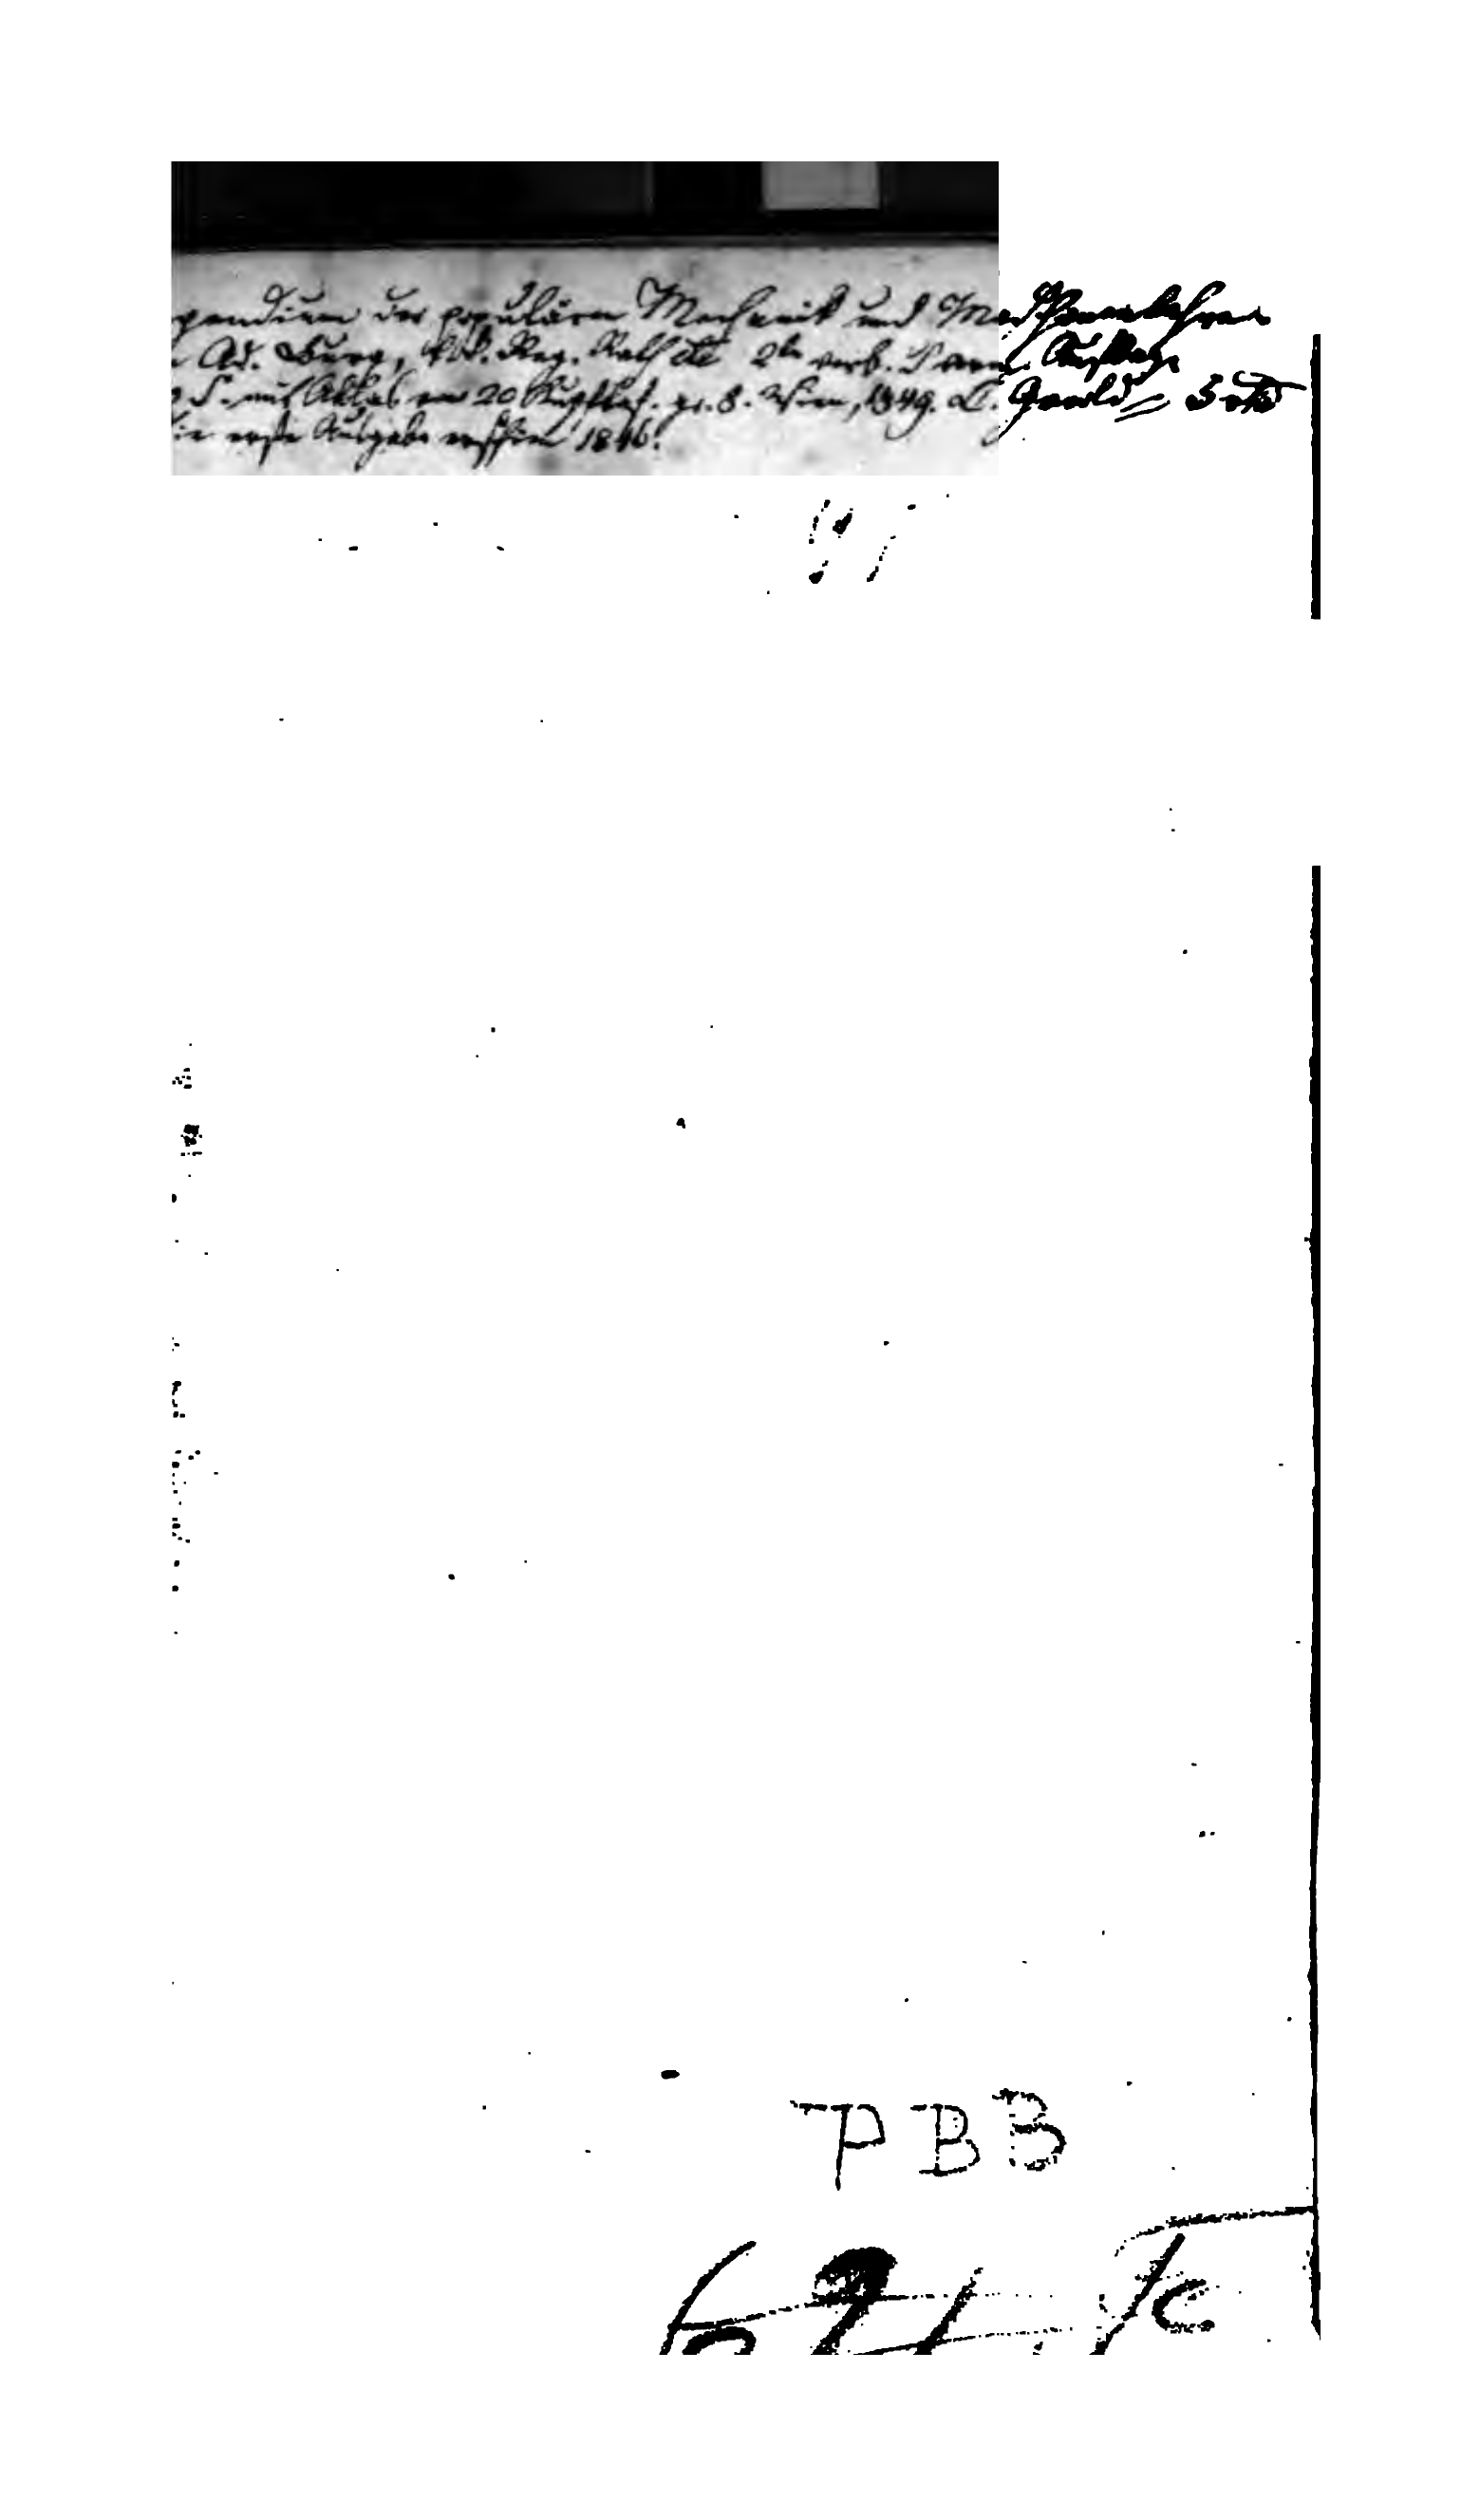 pendium der populären Mechanik und Maschinenlehre
Ad. Burg, k. k. Reg. Rath etc 2te verb. verm. Auflage
S. mit Atlas von 20 Kupfertaf. gr. 8. Wien, 1849. C. Gerold
die erste Ausgabe erschien 1846.
PBB